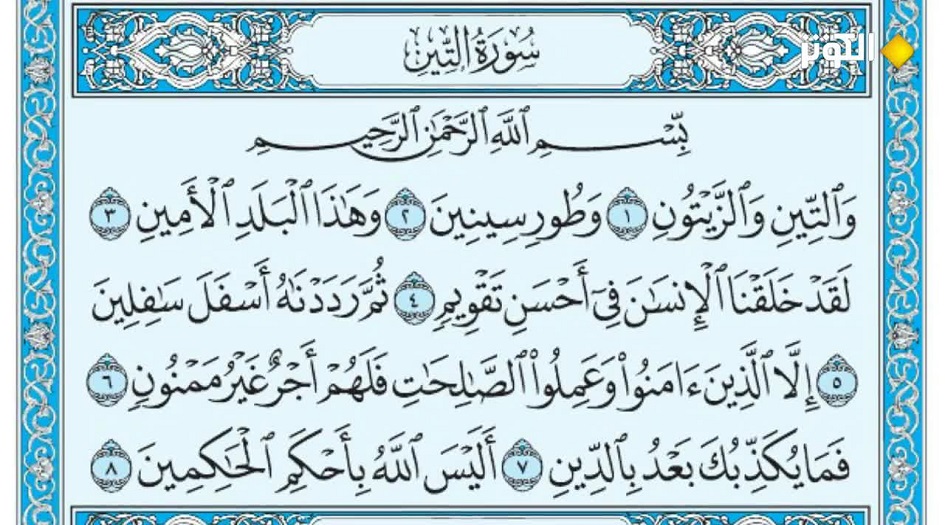 سُورَةُ التِّينِ
الكوثر
بِسْمِ ٱللَّهِ ٱلرَّحْمَٰنِ ٱلرَّحِيمِ
وَٱلتِّينِ وَٱلزَّيْتُونِ ١ وَطُورِ سِينِينَ ٢ وَهَٰذَا ٱلْبَلَدِ ٱلْأَمِينِ ٣
لَقَدْ خَلَقْنَا ٱلْإِنسَٰنَ فِىٓ أَحْسَنِ تَقْوِيمٍ ٤ ثُمَّ رَدَدْنَٰهُ أَسْفَلَ سَٰفِلِينَ
٥ إِلَّا ٱلَّذِينَ ءَامَنُوا۟ وَعَمِلُوا۟ ٱلصَّٰلِحَٰتِ فَلَهُمْ أَجْرٌ غَيْرُ مَمْنُونٍ ٦
فَمَا يُكَذِّبُكَ بَعْدُ بِٱلدِّينِ ٧ أَلَيْسَ ٱللَّهُ بِأَحْكَمِ ٱلْحَٰكِمِينَ ٨